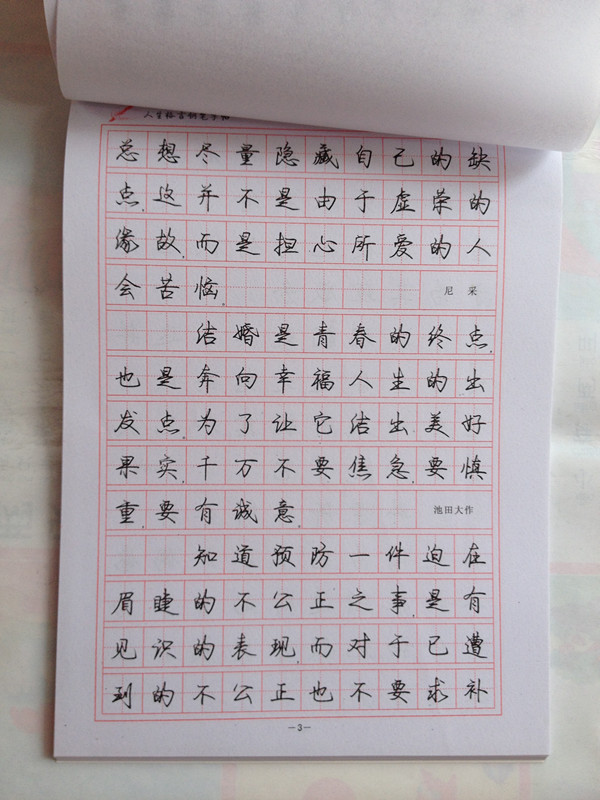 人生格言钢笔字帖
总想尽量隐藏自己的缺
点.这并不是由于虚荣的
缘故.而是担心所爱的人
会苦恼. 尼采
结婚是青春的终点.
也是奔向幸福人生的出
发点.为了让它结出美好
果实.千万不要焦急.要慎
重.要有诚意. 池田大作
知道预防一件迫在
眉睫的不公正之事.是有
见识的表现.而对于已遭
到的不公正也不要求补
—3—